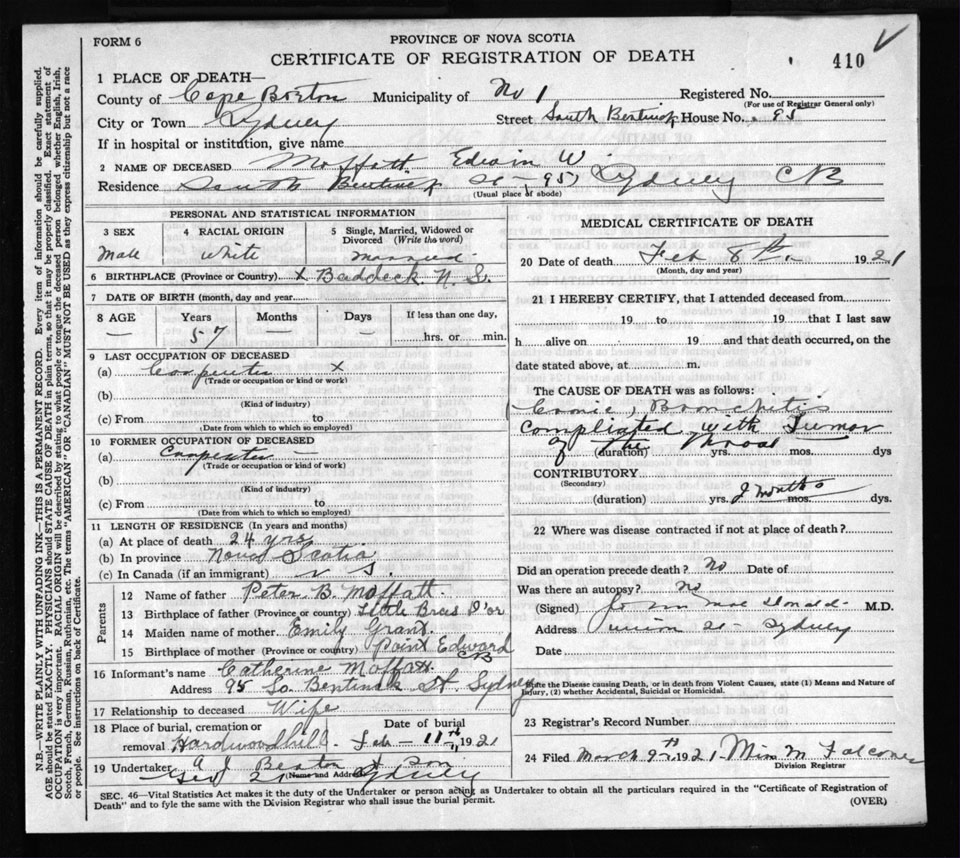 FORM 6
PROVINCE OF NOVA SCOTIA
CERTIFICATE OF REGISTRATION OF DEATH
410
1 PLACE OF DEATH—
County of Cape Breton Municipality of No 1 Registered No.
(For use of Registrar General only)
City or Town Sydney Street South Bentinck House No. 95
If in hospital or institution, give name
2 NAME OF DECEASED Moffatt Edwin W.
Residence South Bentinck St - 95, Sydney CB
(Usual place of abode)
PERSONAL AND STATISTICAL INFORMATION
3 SEX 4 RACIAL ORIGIN 5 Single, Married, Widowed or Divorced (Write the word)
Male White Married
6 BIRTHPLACE (Province or Country) Baddeck N. S.
7 DATE OF BIRTH (month, day and year)
8 AGE Years Months Days If less than one day,
— 57 — — hrs. or min.
9 LAST OCCUPATION OF DECEASED
(a) Carpenter X
(Trade or occupation or kind or work)
(b)
(Kind of industry)
(c) From to
(Date from which to which so employed)
10 FORMER OCCUPATION OF DECEASED
(a) Carpenter —
(Trade or occupation or kind or work)
(b)
(Kind of industry)
(c) From to
(Date from which to which so employed)
11 LENGTH OF RESIDENCE (In years and months)
(a) At place of death 24 yrs
(b) In province Nova Scotia
(c) In Canada (if an immigrant) N S.
Parents
12 Name of father Peter B. Moffatt.
13 Birthplace of father (Province or country) Little Bras D'or
14 Maiden name of mother Emily Grant.
15 Birthplace of mother (Province or country) Point Edward CB
16 Informant's name Catherine Moffatt
Address 95 So. Bentinck St. Sydney
17 Relationship to deceased Wife
18 Place of burial, cremation or removal Hardwoodhill. Date of burial Feb - 11th 1921
19 Undertaker A J Beaton & Son
(Name and Address)
Sydney
MEDICAL CERTIFICATE OF DEATH
20 Date of death Feb 8th 1921
(Month, day and year)
21 I HEREBY CERTIFY, that I attended deceased from
19 to 19 that I last saw
h alive on 19 and that death occurred, on the
date stated above, at m.
The CAUSE OF DEATH was as follows:
Cronic, Bronchitis
Compliated with Tumor
of the Throat
(duration) yrs. mos. dys
CONTRIBUTORY
(Secondary)
(duration) yrs. months mos. dys.
22 Where was disease contracted if not at place of death?
Did an operation precede death? No Date of
Was there an autopsy? No
(Signed) John MacDonald M.D.
Address Union St - Sydney
Date
State the Disease causing Death, or in death from Violent Causes, state (1) Means and Nature of Injury, (2) whether Accidental, Suicidal or Homicidal.
23 Registrar's Record Number
24 Filed March 9th 1921 Miss M Falconer
Division Registrar
SEC. 46—Vital Statistics Act makes it the duty of the Undertaker or person acting as Undertaker to obtain all the particulars required in the "Certificate of Registration of
Death" and to fyle the same with the Division Registrar who shall issue the burial permit.
(OVER)
N.B.—WRITE PLAINLY WITH UNFADING INK—THIS IS A PERMANENT RECORD. Every item of information should be carefully supplied.
AGE should be stated EXACTLY. PHYSICIANS should STATE CAUSE OF DEATH in plain terms, so that it may be properly classified. Exact statement of
OCCUPATION is very important. RACIAL ORIGIN will be described by stating to what people or tongue the deceased person belonged, whether English, Irish,
Scotch, French, German, Russian, Ruthenian, etc. The terms "AMERICAN" OR "CANADIAN" MUST NOT BE USED as they express citizenship but not a race
or people. See instructions on back of Certificate.